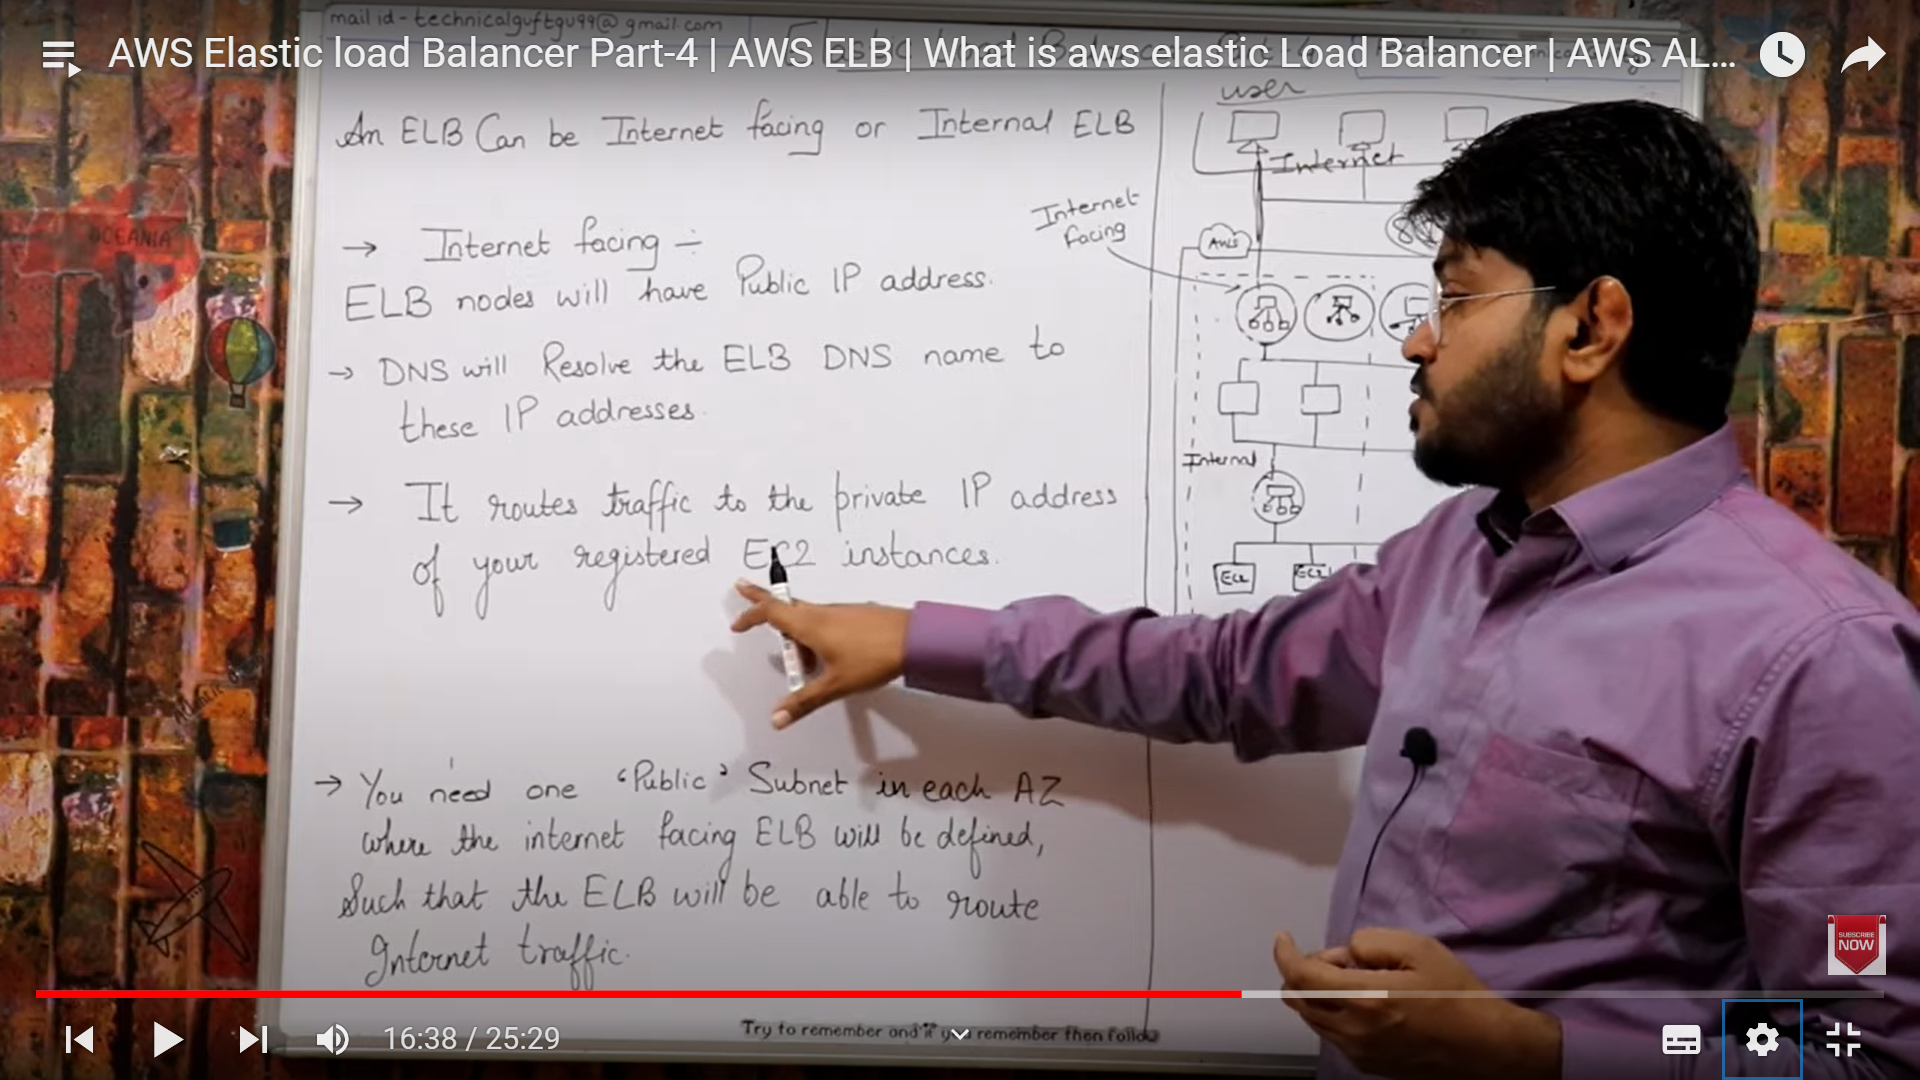 mail id - technicalguftgu99@gmail.com
AWS Elastic load Balancer Part-4 | AWS ELB | What is aws elastic Load Balancer | AWS AL...
An ELB Can be Internet facing or Internal ELB
→ Internet facing ÷
ELB nodes will have Public IP address.
→ DNS will Resolve the ELB DNS name to
these IP addresses.
→ It routes traffic to the private IP address
of your registered EC2 instances.
→ You need one 'Public' Subnet in each AZ
where the internet facing ELB will be defined,
Such that the ELB will be able to route
Internet traffic.
user
Internet
Internet
facing
AWS
Internal
EC2
EC2
SUBSCRIBE
NOW
Try to remember and if you remember then follow
16:38 / 25:29